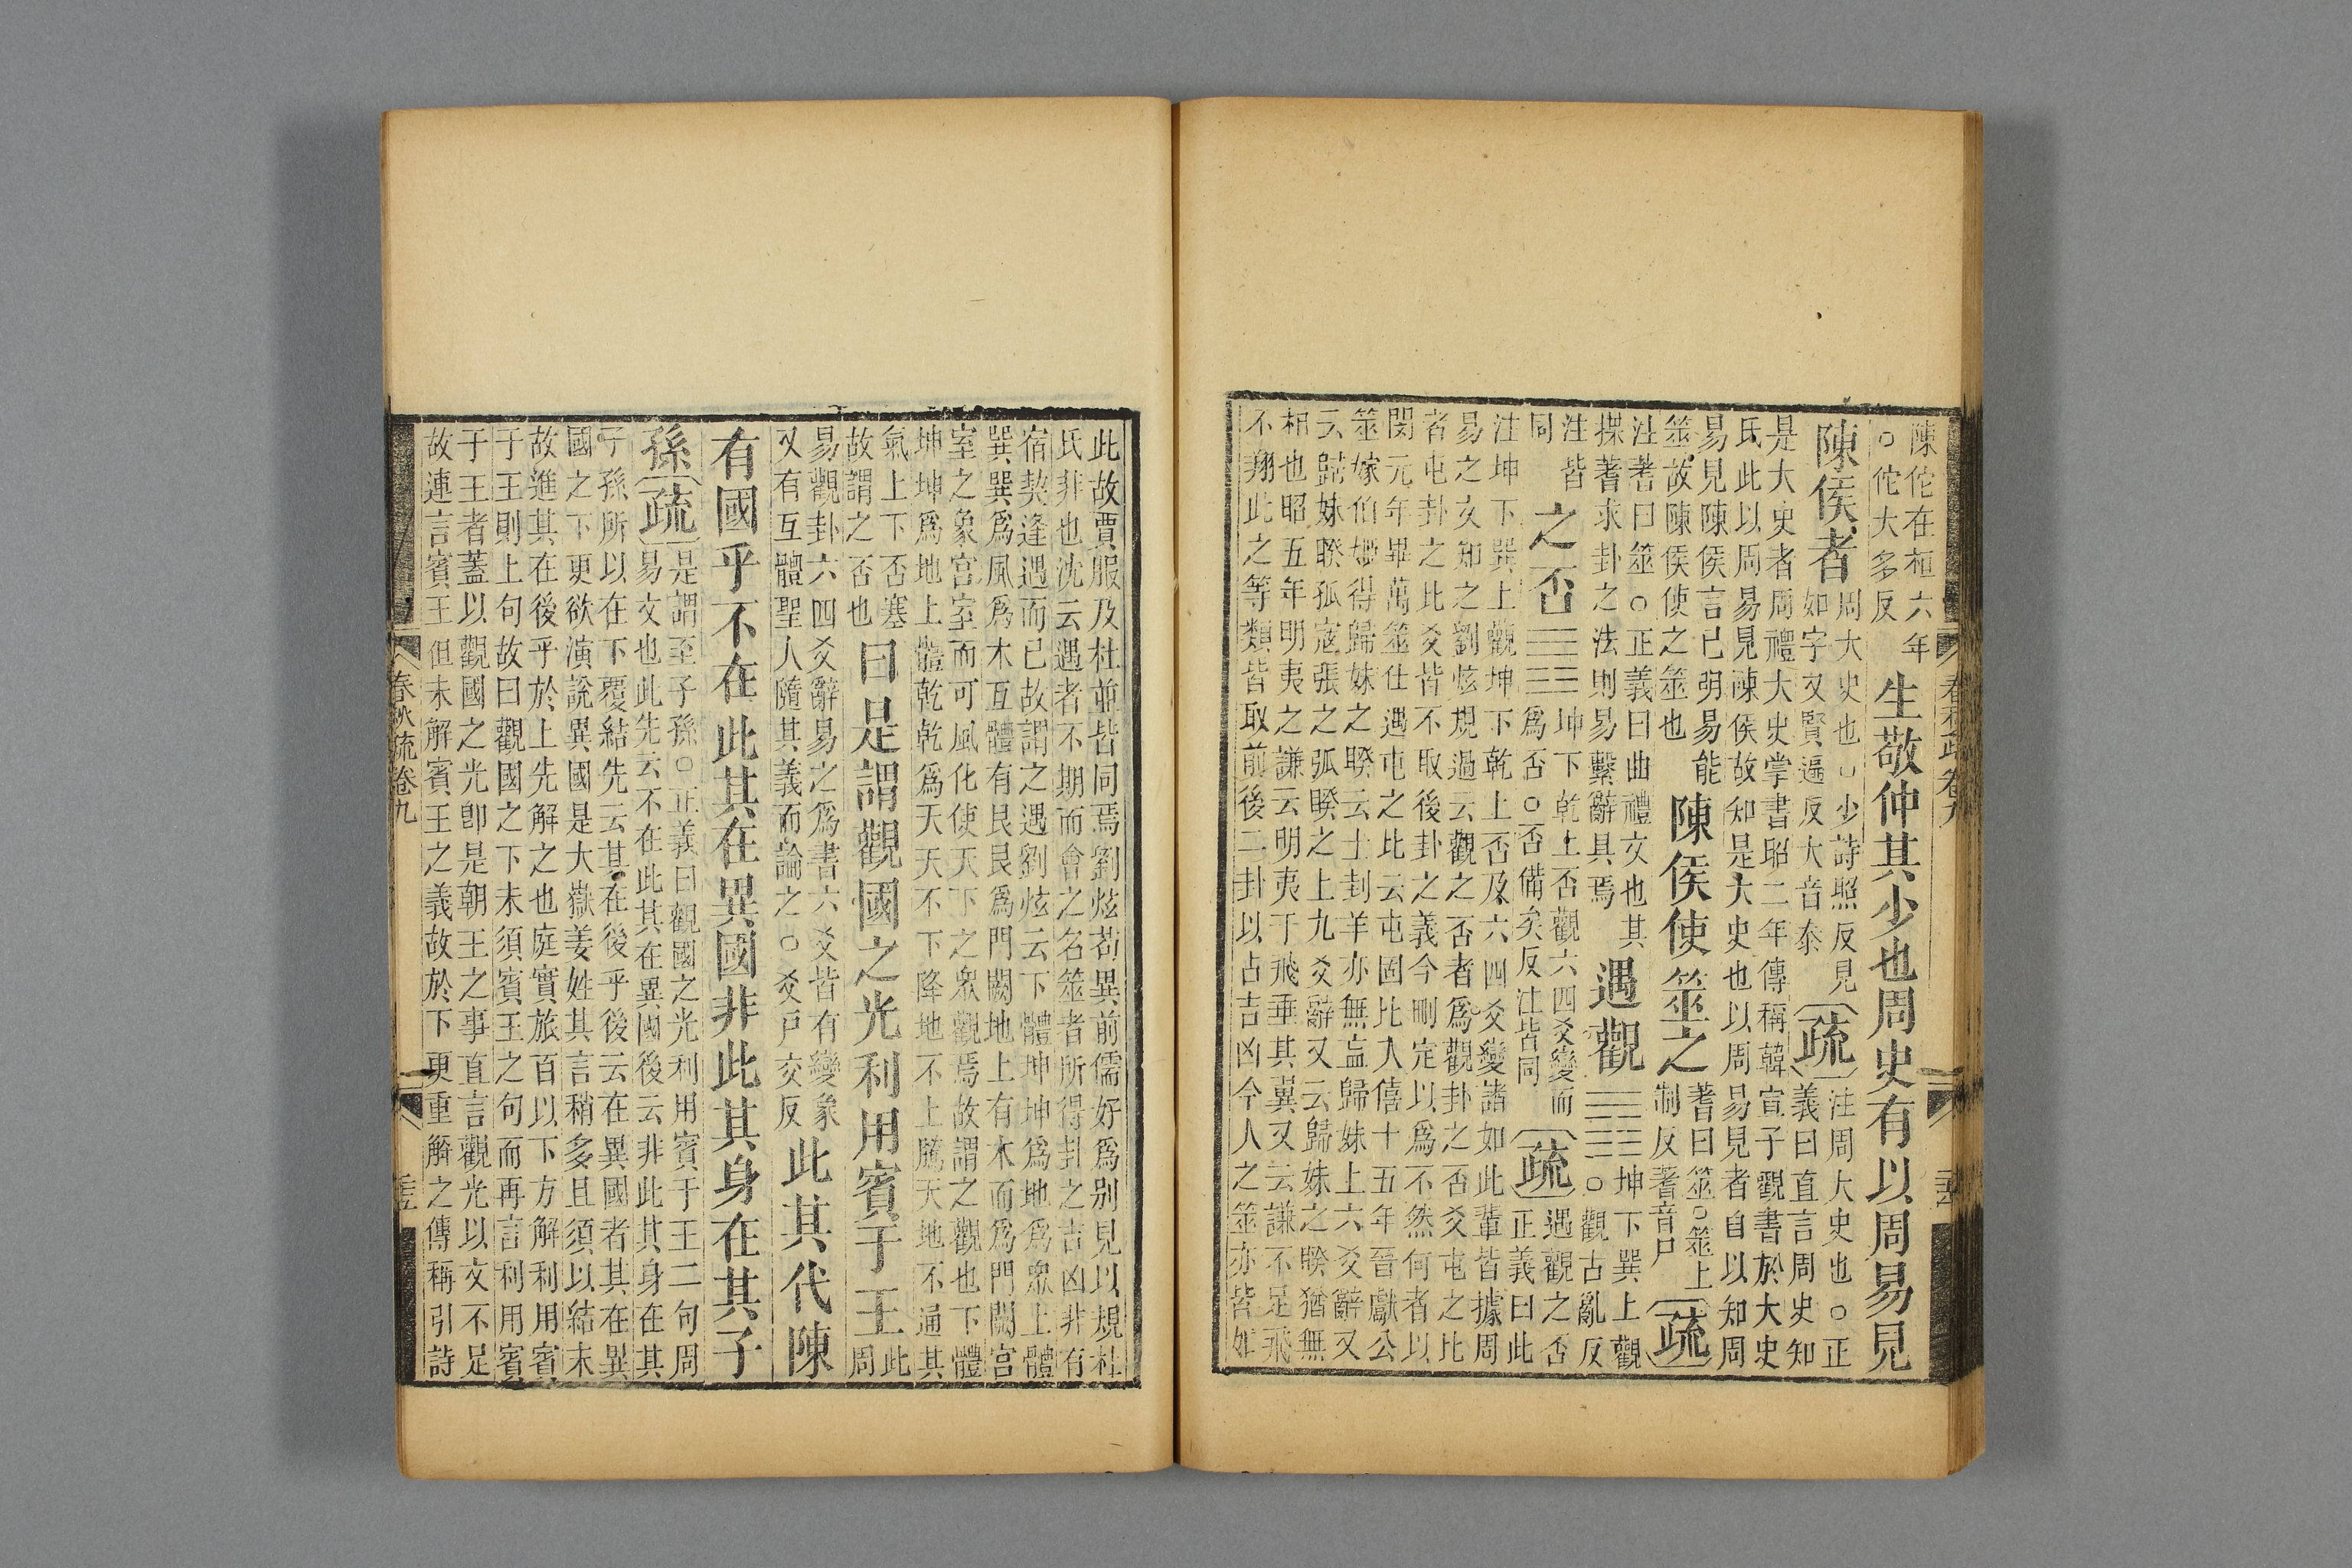 陳佗在桓六年
○佗大多反
生敬仲其少也周史有以周易見
陳侯者
周大史也○少詩照反見
如字又賢遍反大音泰
疏
注周大史也○正
義曰直言周史知
是大史者周禮大史掌書昭二年傳稱韓宣子觀書於大史
氏此以周易見陳侯故知是大史也以周易見者自以知周
易見陳侯言已明易能
筮故陳侯使之筮也
陳侯使筮之
蓍曰筮○筮上
制反蓍音尸
疏
注蓍曰筮○正義曰曲禮文也其
揲蓍求卦之法則易繫辭具焉
遇觀
䷓坤下巽上觀
○觀古亂反
注皆
同
之否
䷋坤下乾上否觀六四爻變而
爲否○否備矣反注皆同
疏
遇觀之否
正義曰此
注坤下巽上觀坤下乾上否及六四爻變諸如此輩皆據周
易之文知之劉炫規過云觀之否者爲觀卦之否爻屯之比
者屯卦之比爻皆不取後卦之義今刪定以爲不然何者以
閔元年畢萬筮仕遇屯之比云屯固比入僖十五年晉獻公
筮嫁伯姬得歸妹之睽云士刲羊亦無衁歸妹上六爻辭又
云歸妹睽孤寇張之弧睽之上九爻辭又云歸妹之睽猶無
相也昭五年明夷之謙云明夷于飛垂其翼又云謙不足飛
不翔此之等類皆取前後二卦以占吉凶今人之筮亦皆如
此故賈服及杜並皆同焉劉炫苟異前儒好爲別見以規杜
氏非也沈云遇者不期而會之名筮者所得卦之吉凶非有
宿契逢遇而已故謂之遇劉炫云下體坤坤爲地爲眾上體
巽巽爲風爲木互體有艮艮爲門闕地上有木而爲門闕宮
室之象宮室而可風化使天下之眾觀焉故謂之觀也下體
坤坤爲地上體乾乾爲天天不下降地不上騰天地不通其
氣上下否塞
故謂之否也
曰是謂觀國之光利用賓于王
此
周
易觀卦六四爻辭易之爲書六爻皆有變象
又有互體聖人隨其義而論之○爻戶交反
此其代陳
有國乎不在此其在異國非此其身在其子
孫
疏
是謂至子孫○正義曰觀國之光利用賓于王二句周
易文也此先云不在此其在異國後云非此其身在其
子孫所以在下覆結先云其在後乎後云在異國者其在異
國之下更欲演說異國是大嶽姜姓其言稍多且須以結未
故進其在後乎於上先解之也庭實旅百以下方解利用賓
于王則上句故曰觀國之下未須賓王之句而再言利用賓
于王者蓋以觀國之光卽是朝王之事直言觀光以文不足
故連言賓王但未解賓王之義故於下更重解之傳稱引詩
春秋疏卷九